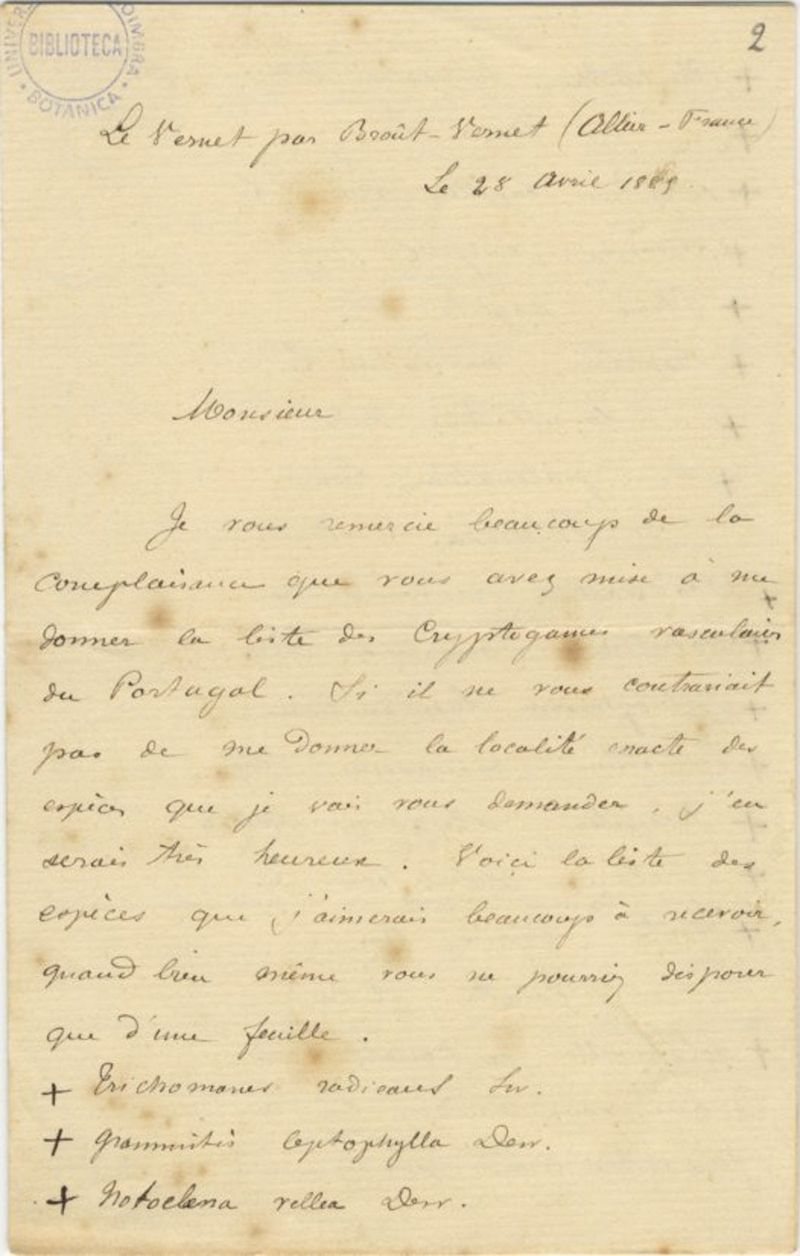 UNIVER COIMBRA
BIBLIOTECA
BOTANICA
2
Le Vernet par Broût-Vernet (Allier - France)
Le 28 Avril 188
Monsieur
Je vous remercie beaucoup de la
complaisance que vous avez mise à me
donner la liste des Cryptogames vasculaires
du Portugal. Si il ne vous contrariait
pas de me Donner la localité exacte des
espèces que je vais vous demander, j'en
serais très heureux. Voici la liste des
espèces que j'aimerais beaucoup à recevoir,
quand bien même vous ne pourriez disposer
que d'une feuille.
+ Trichomanes radicans Sw.
+ Grammitis leptophylla Desv.
+ Notoclena vellea Desv.